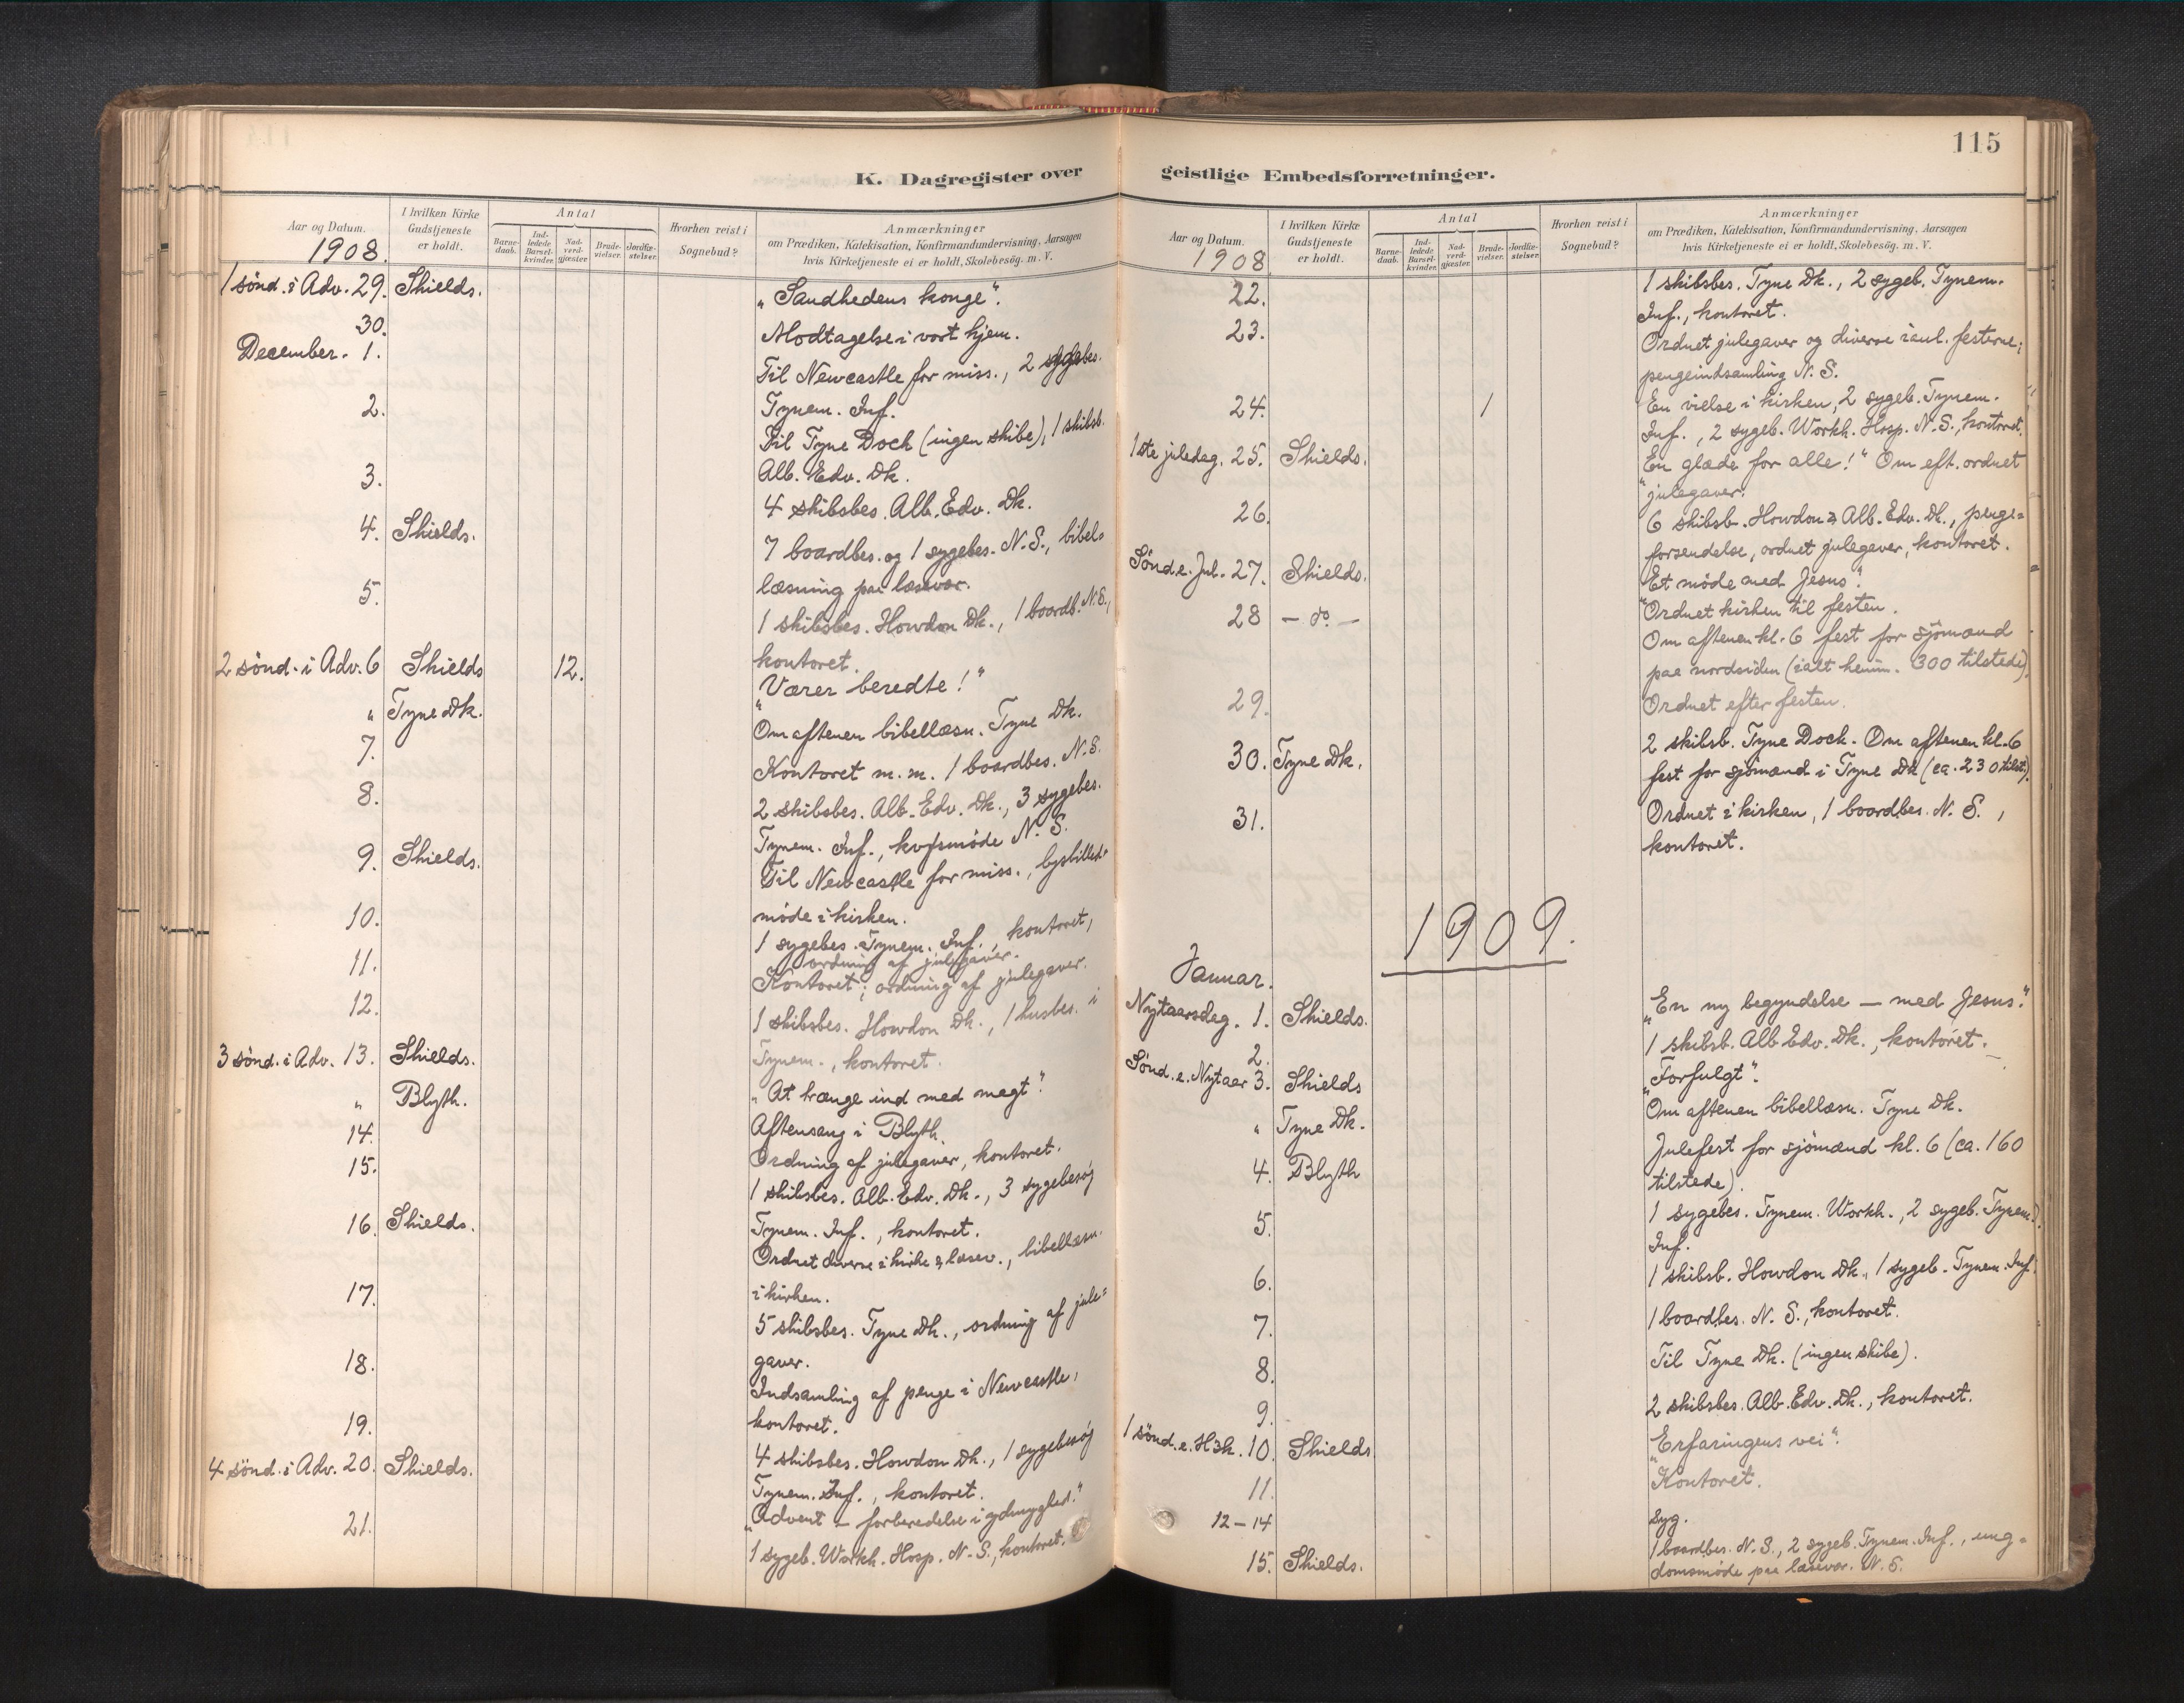 K. Dagregister over
Aar og Datum.
I hvilken Kirke Gudstjeneste er holdt.
Antal
Barne-daab.
Ind-ledede Barsel-kvinder.
Nad-verd-gjæster.
Brude-vielser.
Jordfæ-stelser.
Hvorhen reist i Sognebud?
Anmærkninger
om Prædiken, Katekisation, Konfirmandundervisning, Aarsagen
hvis Kirketjeneste ei er holdt, Skolebesög. m. V.
1908.
1 sönd. i Adv. 29. Shields. „Sandhedens konge“.
30. Modtagelse i vort hjem.
December. 1. Til Newcastle for miss., 2 sygebes.
Tynem. Inf.
2. Til Tyne Dock (ingen skibe), 1 skibsb.
Alb. Edv. Dk.
3. 4 skibsbes. Alb. Edv. Dk.
4. Shields. 7 boardbes. og 1 sygebes. N. S., bibel=
læsning paa læsevær.
5. 1 skibsbes. Howdon Dk., 1 boardb. N. S.,
kontoret.
2 sönd. i Adv. 6 Shields 12. „Værer beredte!“
" Tyne Dk. Om aftenen bibellæsn. Tyne Dk.
7. Kontoret m. m. 1 boardbes. N. S.
8. 2 skibsbes. Alb. Edv. Dk., 3 sygebes.
Tynem. Inf., møde N. S.
9. Shields. Til Newcastle for miss., lysbilled=
möde i kirken.
10. 1 sygebes. Tynem. Inf., kontoret,
ordning af julegaver.
11. Kontoret; ordning af julegaver.
12. 1 skibsbes. Howdon Dk., 1 husbes. i
Tynem., kontoret.
3 sönd. i Adv. 13. Shields. „At trænge ind med magt“.
" Blyth. Aftensang i Blyth.
14. Ordning af julegaver, kontoret.
15. 1 skibsbes. Alb. Edv. Dk., 3 sygebesög
Tynem. Inf., kontoret.
16. Shields. Ordnet diverse i kirke & læsev., bibellæsn.
i kirken.
17. 5 skibsbes. Tyne Dk., ordning af jule=
gaver.
18. Indsamling af penge i Newcastle,
kontoret.
19. 4 skibsbes. Howdon Dk., 1 sygebesög
Tynem. Inf., kontoret.
4 sönd. i Adv. 20. Shields. „Advent – forberedelse i ydmyghed.“
21. 1 sygeb. Workh. Hosp. N. S., kontoret.
115
geistlige Embedsforretninger.
Aar og Datum.
I hvilken Kirke Gudstjeneste er holdt.
Antal
Barne-daab.
Ind-ledede Barsel-kvinder.
Nad-verd-gjæster.
Brude-vielser.
Jordfæ-stelser.
Hvorhen reist i Sognebud?
Anmærkninger
om Prædiken, Katekisation, Konfirmandundervisning, Aarsagen
hvis Kirketjeneste ei er holdt, Skolebesög. m. V.
1908
22. 1 skibsbes. Tyne Dk., 2 sygeb. Tynem.
Inf., kontoret.
23. Ordnet julegaver og diverse i anl. festerne;
pengeindsamling N. S.
24. 1 En vielse i kirken, 2 sygeb. Tynem.
Inf., 2 sygeb. Workh. Hosp. N. S., kontoret.
1ste juledag. 25. Shields. „En glæde for alle!“ Om eft. ordnet
julegaver.
26. 6 skibsb. Howdon & Alb. Edv. Dk., penge=
forsendelse, ordnet julegaver, kontoret.
Sönd. e. Jul. 27. Shields. „Et möde med Jesus“.
28 – do. – Ordnet kirken til festen.
Om aftenen kl. 6 fest for sjömænd
paa nordsiden (ialt henim. 300 tilstede).
29. Ordnet efter festen.
30. Tyne Dk. 2 skibsb. Tyne Dock. Om aftenen kl. 6
fest for sjömænd i Tyne Dk (ca. 230 tilst.).
31. Ordnet i kirken, 1 boardbes. N. S.,
kontoret.
1909.
Januar.
Nytaarsdag. 1. Shields. „En ny begyndelse – med Jesus.“
2. 1 skibsb. Alb. Edv. Dk., kontoret.
Sönd. e. Nytaar 3. Shields „Forfulgt“.
" Tyne Dk. Om aftenen bibellæsn. Tyne Dk.
4. Blyth Julefest for sjömænd kl. 6 (ca. 160
tilstede).
5. 1 sygebes. Tynem. Workh., 2 sygeb. Tynem.
Inf.
6. 1 skibsb. Howdon Dk., 1 sygeb. Tynem. Inf.
1 boardbes. N. S., kontoret.
7. Til Tyne Dk. (ingen skibe).
8. 2 skibsbes. Alb. Edv. Dk., kontoret.
9.
1 sönd. e. H3k. 10. Shields „Erfaringens vei“.
11. Kontoret.
12–14 Syg.
15. Shields. 1 boardbes. N. S., 2 sygeb. Tynem. Inf., ung=
domsmöde paa læsevær. N. S.